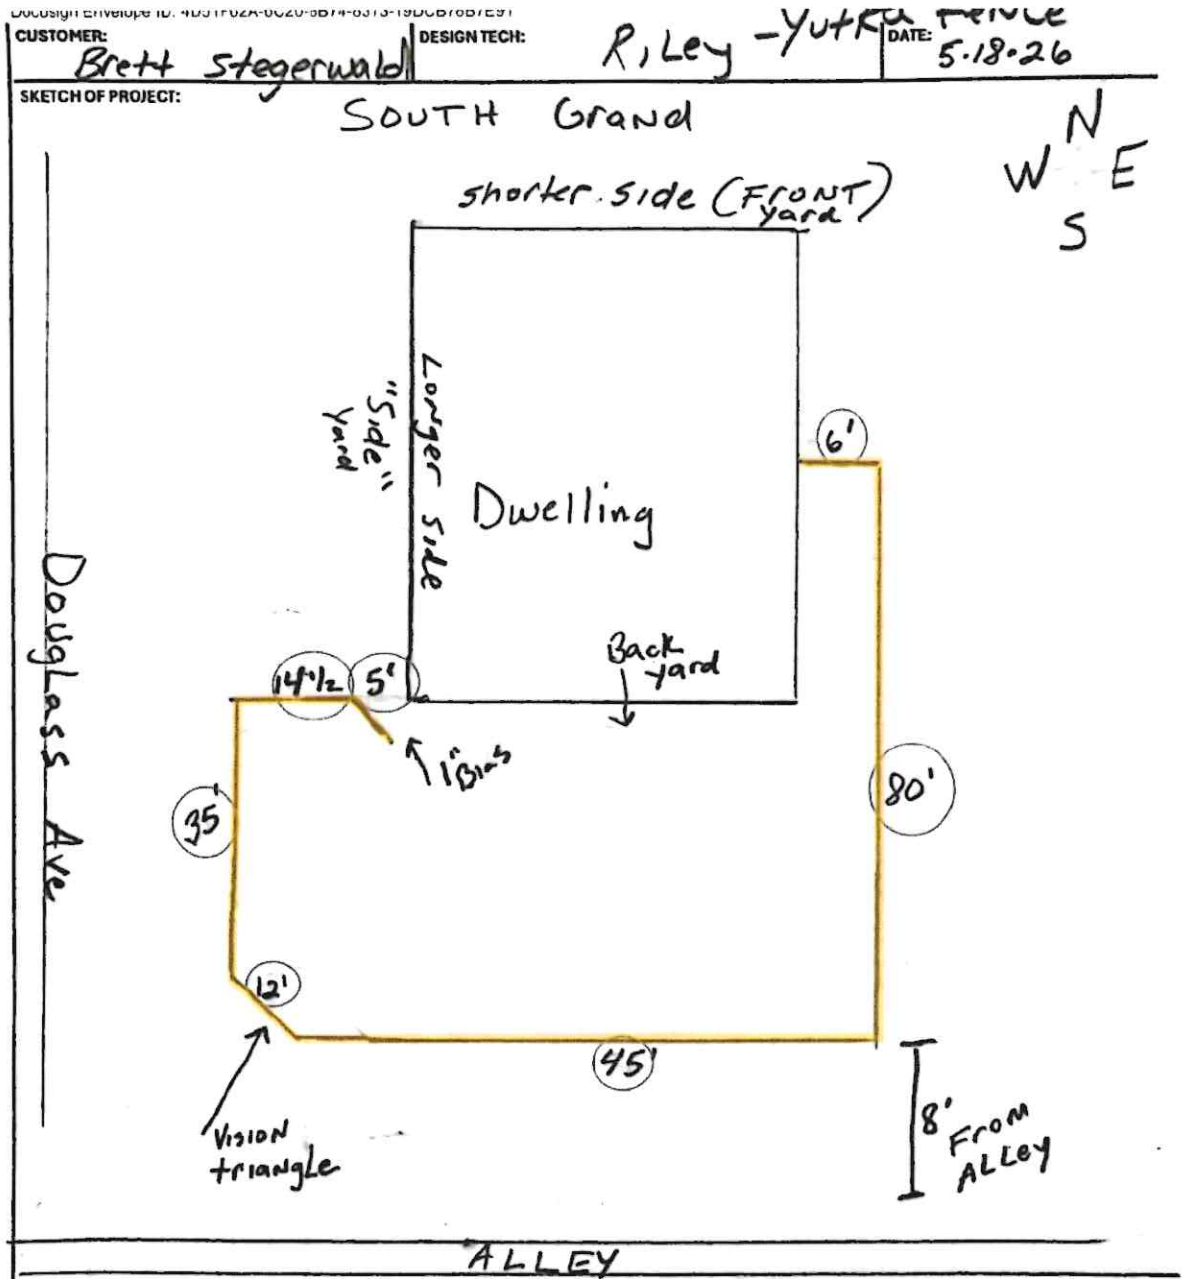 CUSTOMER:
Brett Stegerwald
DESIGN TECH:
Riley - Yutka Fence
DATE:
5.18.26
SKETCH OF PROJECT:
SOUTH Grand
N
W E
S
shorter side (FRONT
yard)
"Side"
yard
Longer Side
6'
Dwelling
Douglass Ave
Back
yard
14'1/2 5'
1" Bias
35'
80'
12'
45'
Vision
triangle
8'
From
ALLey
ALLEY